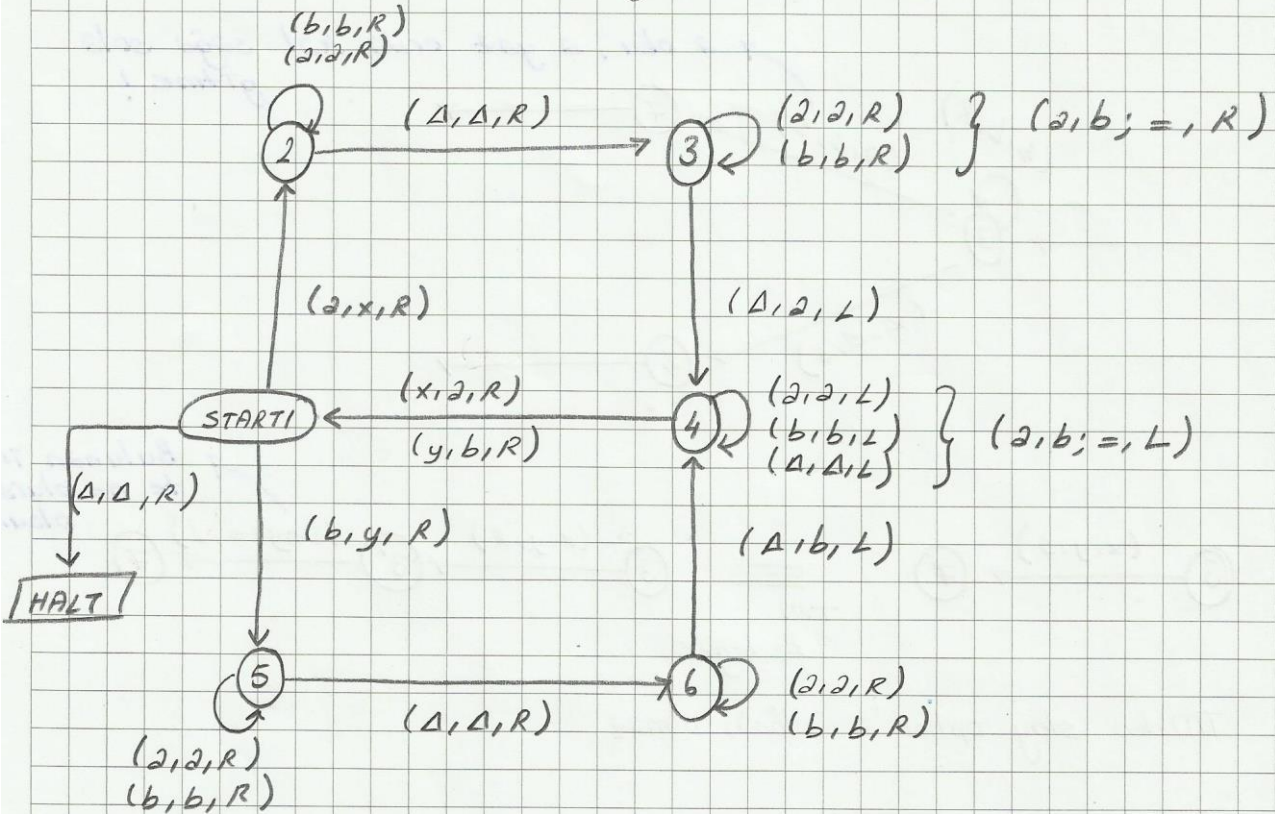 (b,b,R)
(a,a,R)
2
(Δ,Δ,R)
3
(a,a,R)
(b,b,R)
} (a,b; =, R)
(a,x,R)
(Δ,a,L)
START1
(x,a,R)
(y,b,R)
4
(a,a,L)
(b,b,L)
(Δ,Δ,L)
} (a,b; =, L)
(Δ,Δ,R)
HALT
(b,y,R)
(Δ,b,L)
5
(a,a,R)
(b,b,R)
(Δ,Δ,R)
6
(a,a,R)
(b,b,R)